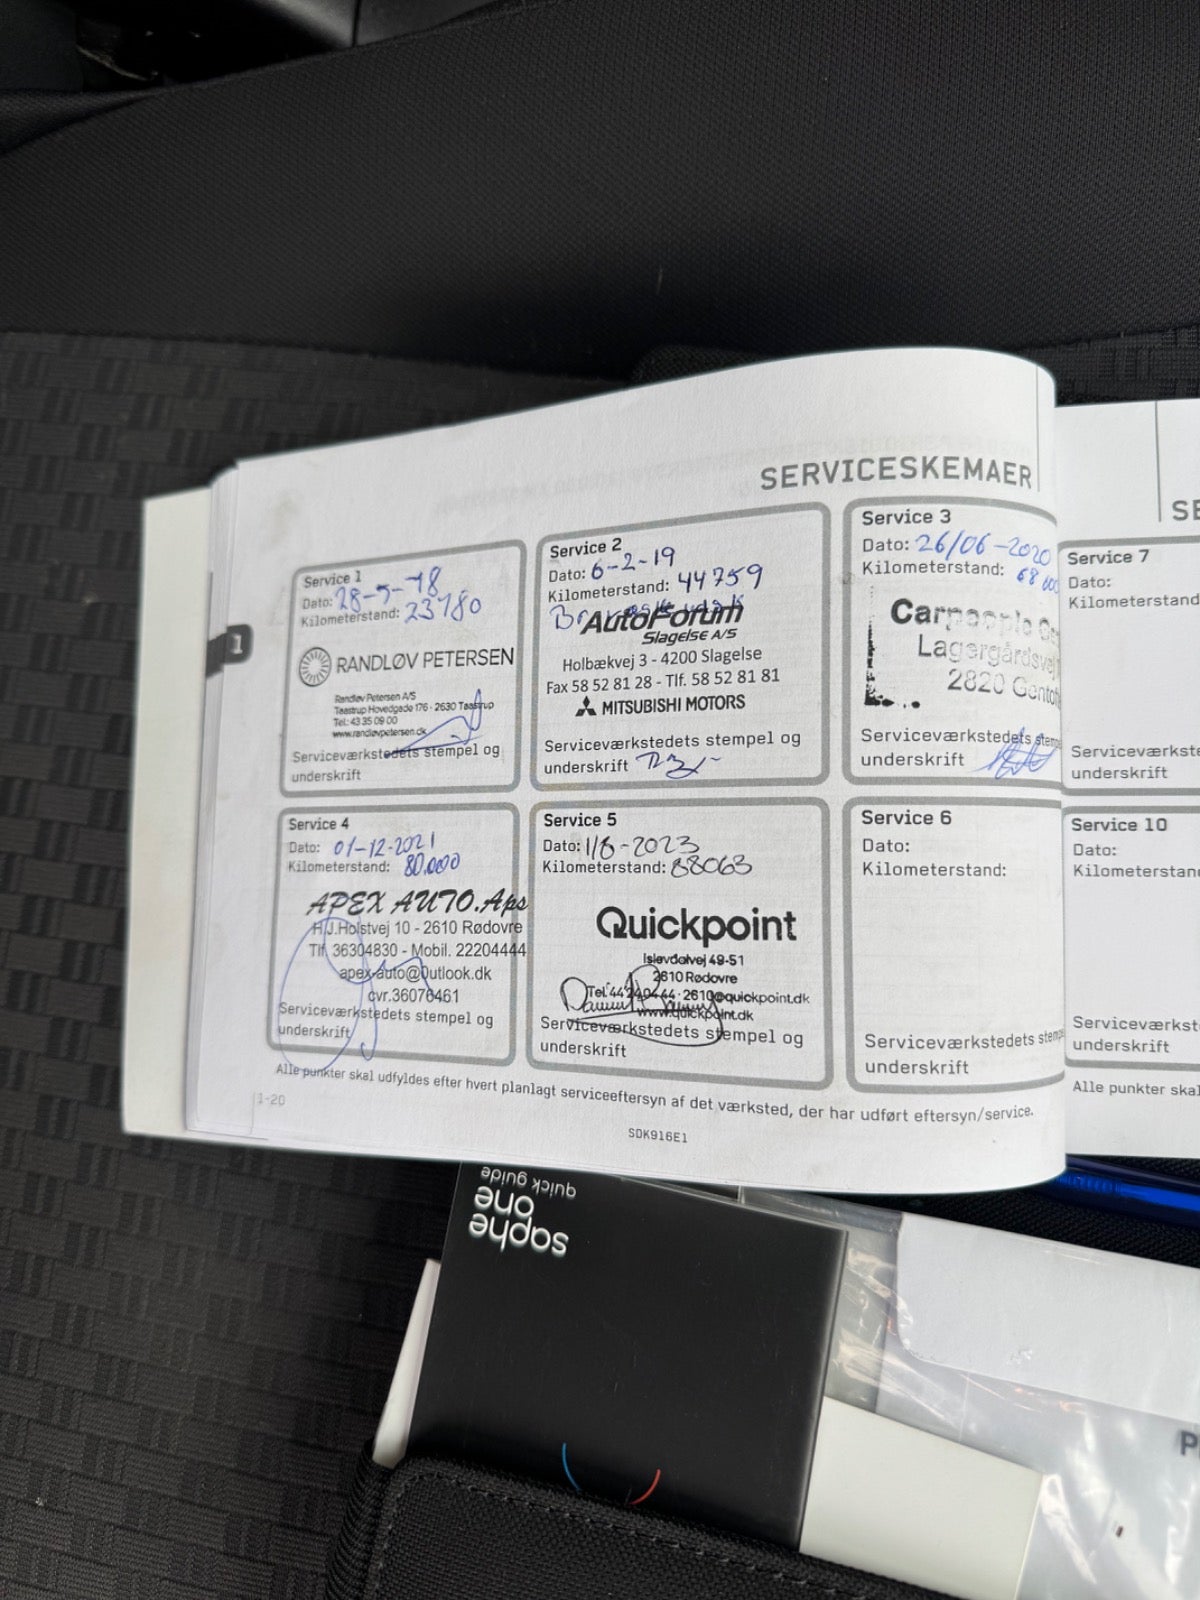 SERVICESKEMAER
Service 1
Dato: 28-5-18
Kilometerstand: 23180
RANDLØV PETERSEN
Randløv Petersen A/S
Taastrup Hovedgade 176 · 2630 Taastrup
Tel.: 43 35 09 00
www.randløvpetersen.dk
Serviceværkstedets stempel og
underskrift
Service 2
Dato: 6-2-19
Kilometerstand: 44759
AutoForum
Slagelse A/S
Holbækvej 3 - 4200 Slagelse
Fax 58 52 81 28 - Tlf. 58 52 81 81
MITSUBISHI MOTORS
Serviceværkstedets stempel og
underskrift
Service 3
Dato: 26/06-2020
Kilometerstand: 68 000
Carpeople
Lagergårdsvej
2820 Gentof
Serviceværkstedets stem
underskrift
Service 4
Dato: 01-12-2021
Kilometerstand: 80.000
APEX AUTO.Aps
H.J.Holstvej 10 - 2610 Rødovre
Tlf. 36304830 - Mobil. 22204444
apex-auto@Outlook.dk
cvr.36076461
Serviceværkstedets stempel og
underskrift
Service 5
Dato: 1/8-2023
Kilometerstand: 88063
Quickpoint
Islevdalvej 49-51
2610 Rødovre
Tel 44 24 04 44 · 2610@quickpoint.dk
www.quickpoint.dk
Serviceværkstedets stempel og
underskrift
Service 6
Dato:
Kilometerstand:
Serviceværkstedets stemp
underskrift
Alle punkter skal udfyldes efter hvert planlagt serviceeftersyn af det værksted, der har udført eftersyn/service.
1-20
SDK916E1
1
SE
Service 7
Dato:
Kilometerstand
Serviceværkste
underskrift
Service 10
Dato:
Kilometerstan
Serviceværkst
underskrift
Alle punkter ska
saphe
one
quick guide
P